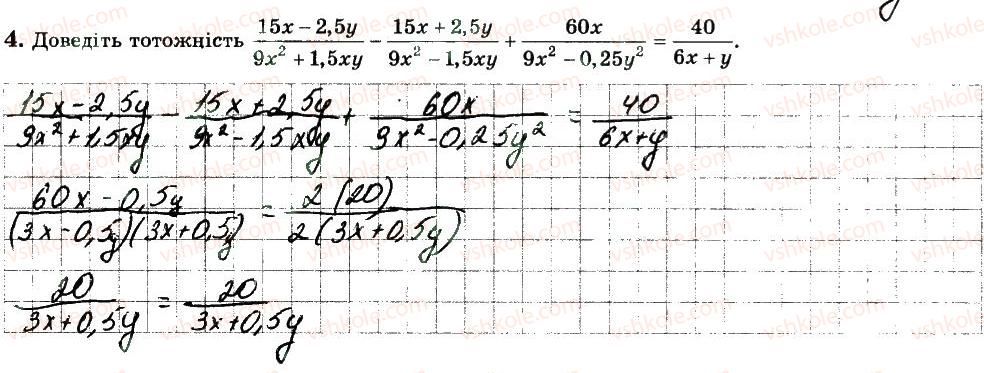 4. Доведіть тотожність (15x − 2,5y)/(9x² + 1,5xy) − (15x + 2,5y)/(9x² − 1,5xy) + 60x/(9x² − 0,25y²) = 40/(6x + y).
(15x − 2,5y)/(9x² + 1,5xy) − (15x + 2,5y)/(9x² − 1,5xy) + 60x/(9x² − 0,25y²) = 40/(6x + y)
(60x − 0,5y)/((3x − 0,5y)(3x + 0,5y)) = 2(20)/(2(3x + 0,5y))
20/(3x + 0,5y) = 20/(3x + 0,5y)